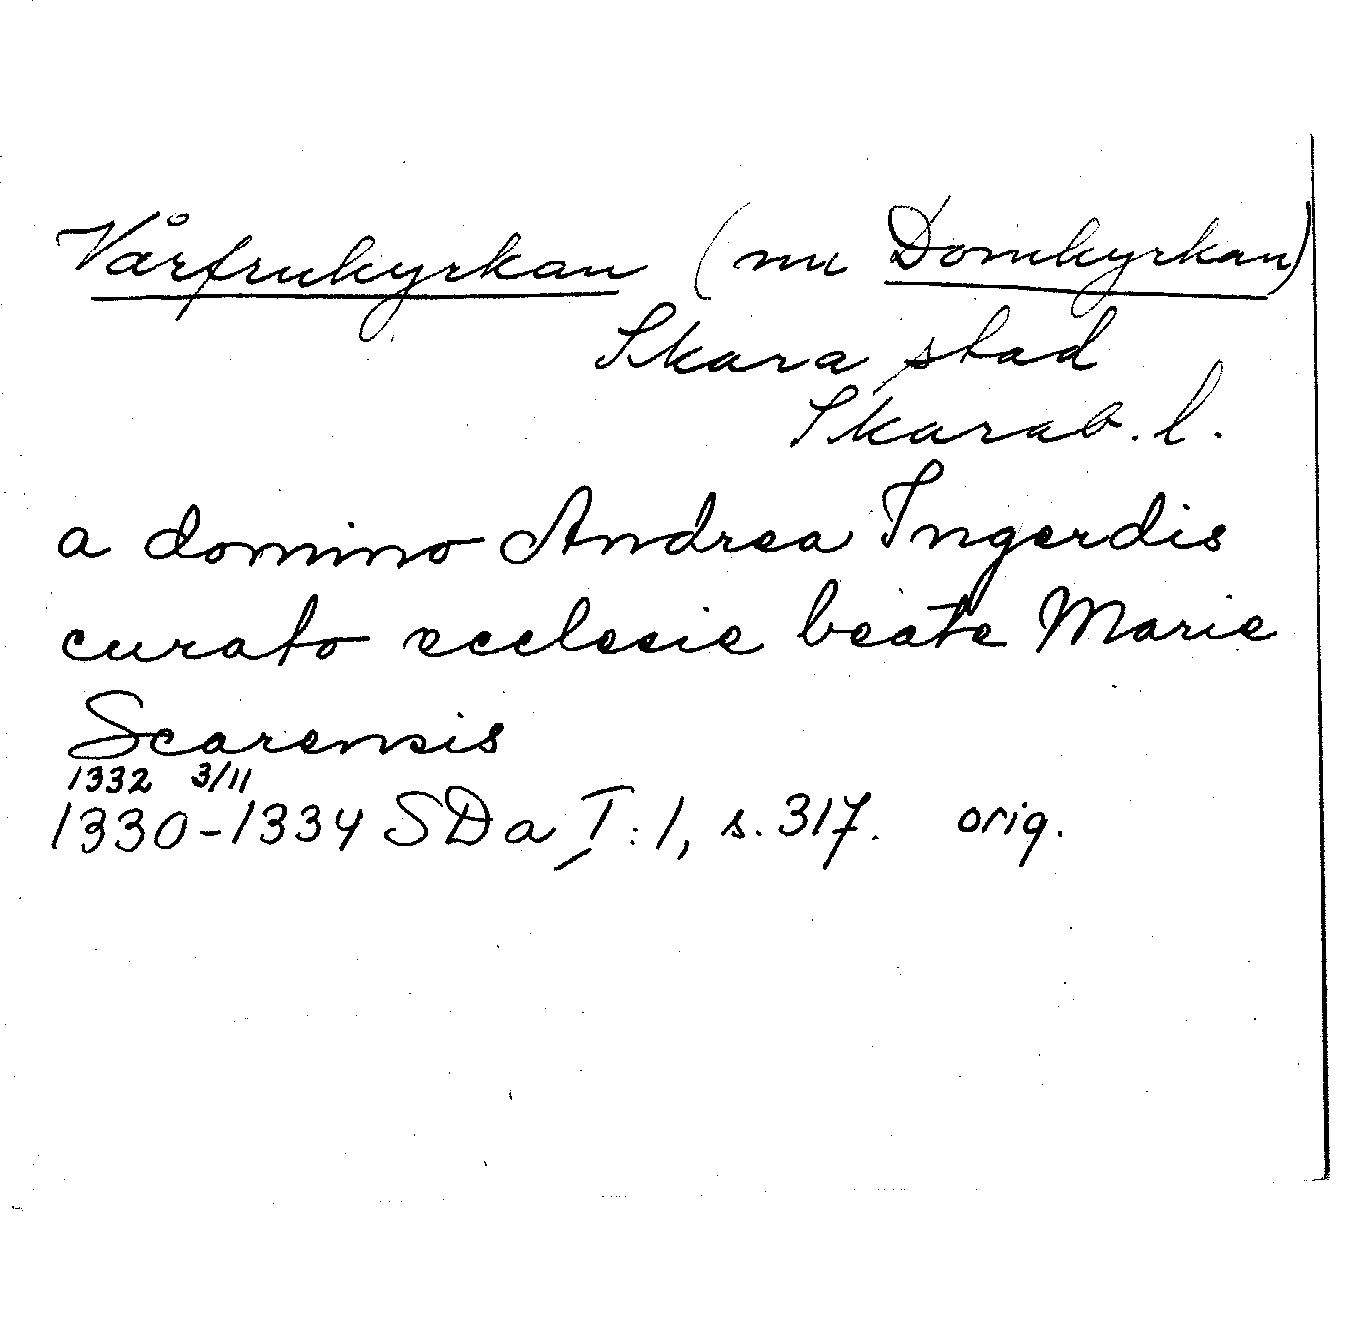 Vårfrukyrkan (nu Domkyrkan)
Skara stad
Skarab. l.
a domino Andrea Ingerdis
curato ecclesie beate Marie
Scarensis
1332 3/11
1330-1334 SDa I:1, s. 317. orig.